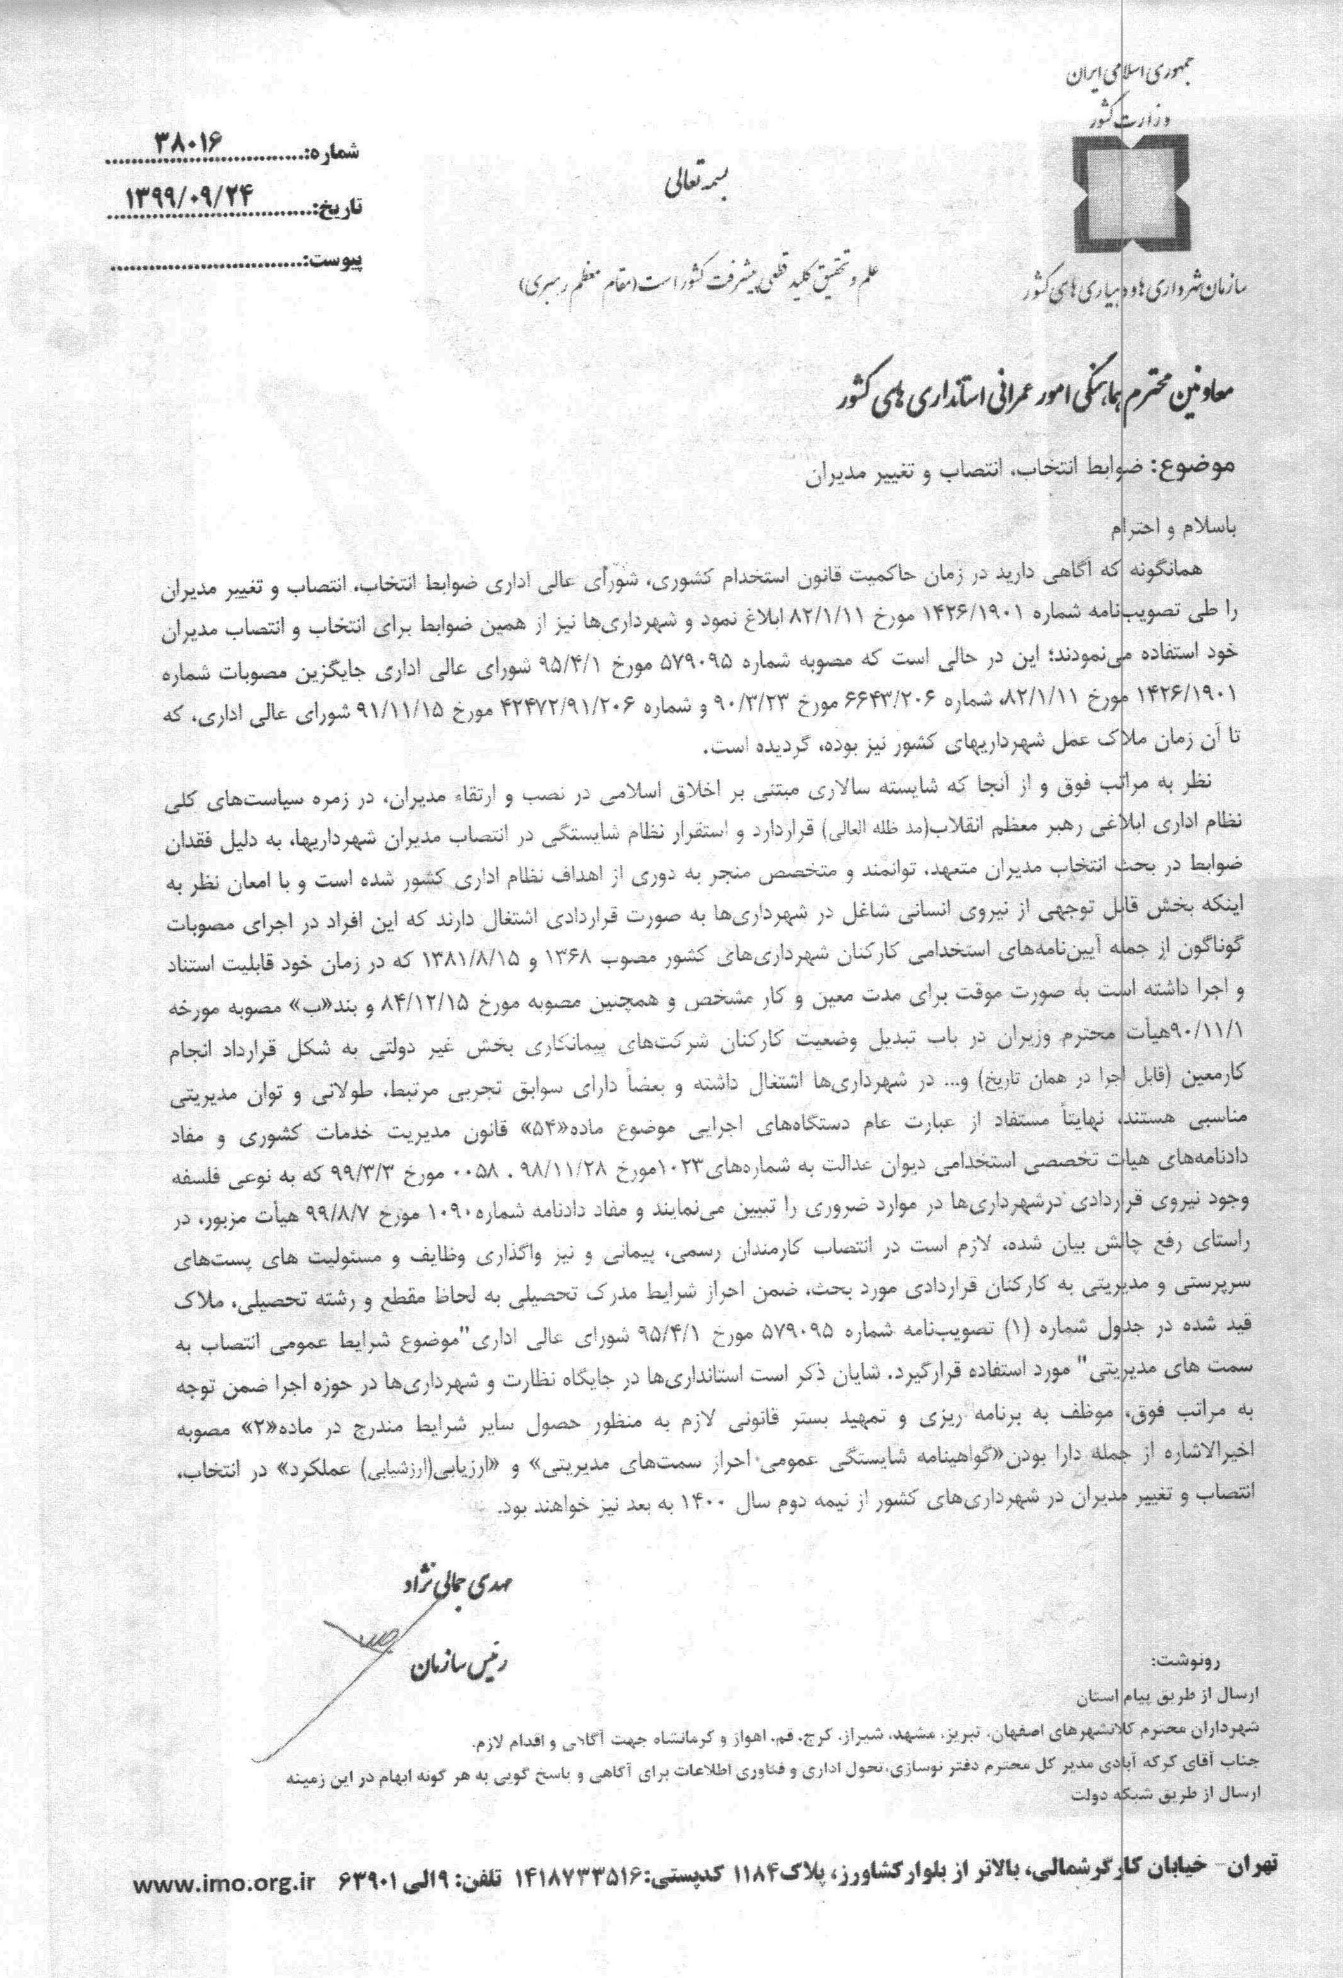 جمهوری اسلامی ایران
وزارت کشور
سازمان شهرداری ها و دهیاری های کشور
بسمه تعالی
علم و تحقیق کلید قطعی پیشرفت کشور است (مقام معظم رهبری)
شماره: ۳۸۰۱۶
تاریخ: ۱۳۹۹/۰۹/۲۴
پیوست:
معاونین محترم هماهنگی امور عمرانی استانداری های کشور
موضوع: ضوابط انتخاب، انتصاب و تغییر مدیران
باسلام و احترام
همانگونه که آگاهی دارید در زمان حاکمیت قانون استخدام کشوری، شورای عالی اداری ضوابط انتخاب، انتصاب و تغییر مدیران
را طی تصویب‌نامه شماره ۱۴۲۶/۱۹۰۱ مورخ ۸۲/۱/۱۱ ابلاغ نمود و شهرداری‌ها نیز از همین ضوابط برای انتخاب و انتصاب مدیران
خود استفاده می‌نمودند؛ این در حالی است که مصوبه شماره ۵۷۹۰۹۵ مورخ ۹۵/۴/۱ شورای عالی اداری جایگزین مصوبات شماره
۱۴۲۶/۱۹۰۱ مورخ ۸۲/۱/۱۱، شماره ۶۶۴۳/۲۰۶ مورخ ۹۰/۳/۲۳ و شماره ۴۲۴۷۲/۹۱/۲۰۶ مورخ ۹۱/۱۱/۱۵ شورای عالی اداری، که
تا آن زمان ملاک عمل شهرداریهای کشور نیز بوده، گردیده است.
نظر به مراتب فوق و از آنجا که شایسته سالاری مبتنی بر اخلاق اسلامی در نصب و ارتقاء مدیران، در زمره سیاست‌های کلی
نظام اداری ابلاغی رهبر معظم انقلاب(مد ظله العالی) قراردارد و استقرار نظام شایستگی در انتصاب مدیران شهرداریها، به دلیل فقدان
ضوابط در بحث انتخاب مدیران متعهد، توانمند و متخصص منجر به دوری از اهداف نظام اداری کشور شده است و با امعان نظر به
اینکه بخش قابل توجهی از نیروی انسانی شاغل در شهرداری‌ها به صورت قراردادی اشتغال دارند که این افراد در اجرای مصوبات
گوناگون از جمله آیین‌نامه‌های استخدامی کارکنان شهرداری‌های کشور مصوب ۱۳۶۸ و ۱۳۸۱/۸/۱۵ که در زمان خود قابلیت استناد
و اجرا داشته است به صورت موقت برای مدت معین و کار مشخص و همچنین مصوبه مورخ ۸۴/۱۲/۱۵ و بند«ب» مصوبه مورخه
۹۰/۱۱/۱هیأت محترم وزیران در باب تبدیل وضعیت کارکنان شرکت‌های پیمانکاری بخش غیر دولتی به شکل قرارداد انجام
کارمعین (قابل اجرا در همان تاریخ) و... در شهرداری‌ها اشتغال داشته و بعضاً دارای سوابق تجربی مرتبط، طولانی و توان مدیریتی
مناسبی هستند، نهایتاً مستفاد از عبارت عام دستگاه‌های اجرایی موضوع ماده«۵۴» قانون مدیریت خدمات کشوری و مفاد
دادنامه‌های هیات تخصصی استخدامی دیوان عدالت به شماره‌های۱۰۲۳مورخ ۹۸/۱۱/۲۸ ، ۰۰۵۸ مورخ ۹۹/۳/۳ که به نوعی فلسفه
وجود نیروی قراردادی درشهرداری‌ها در موارد ضروری را تبیین می‌نمایند و مفاد دادنامه شماره۱۰۹۰ مورخ ۹۹/۸/۷ هیأت مزبور، در
راستای رفع چالش بیان شده، لازم است در انتصاب کارمندان رسمی، پیمانی و نیز واگذاری وظایف و مسئولیت های پست‌های
سرپرستی و مدیریتی به کارکنان قراردادی مورد بحث، ضمن احراز شرایط مدرک تحصیلی به لحاظ مقطع و رشته تحصیلی، ملاک
قید شده در جدول شماره (۱) تصویب‌نامه شماره ۵۷۹۰۹۵ مورخ ۹۵/۴/۱ شورای عالی اداری"موضوع شرایط عمومی انتصاب به
سمت های مدیریتی" مورد استفاده قرارگیرد. شایان ذکر است استانداری‌ها در جایگاه نظارت و شهرداری‌ها در حوزه اجرا ضمن توجه
به مراتب فوق، موظف به برنامه ریزی و تمهید بستر قانونی لازم به منظور حصول سایر شرایط مندرج در ماده«۲» مصوبه
اخیرالاشاره از جمله دارا بودن«گواهینامه شایستگی عمومی احراز سمت‌های مدیریتی» و «ارزیابی(ارزشیابی) عملکرد» در انتخاب،
انتصاب و تغییر مدیران در شهرداری‌های کشور از نیمه دوم سال ۱۴۰۰ به بعد نیز خواهند بود.
مهدی جمالی نژاد
رئیس سازمان
رونوشت:
ارسال از طریق پیام استان
شهرداران محترم کلانشهرهای اصفهان، تبریز، مشهد، شیراز، کرج، قم، اهواز و کرمانشاه جهت آگاهی و اقدام لازم.
جناب آقای کرکه آبادی مدیر کل محترم دفتر نوسازی،تحول اداری و فناوری اطلاعات برای آگاهی و پاسخ گویی به هر گونه ابهام در این زمینه
ارسال از طریق شبکه دولت
تهران- خیابان کارگرشمالی، بالاتر از بلوار کشاورز، پلاک۱۱۸۴ کدپستی:۱۴۱۸۷۳۳۵۱۶ تلفن: ۹الی ۶۳۹۰۱ www.imo.org.ir